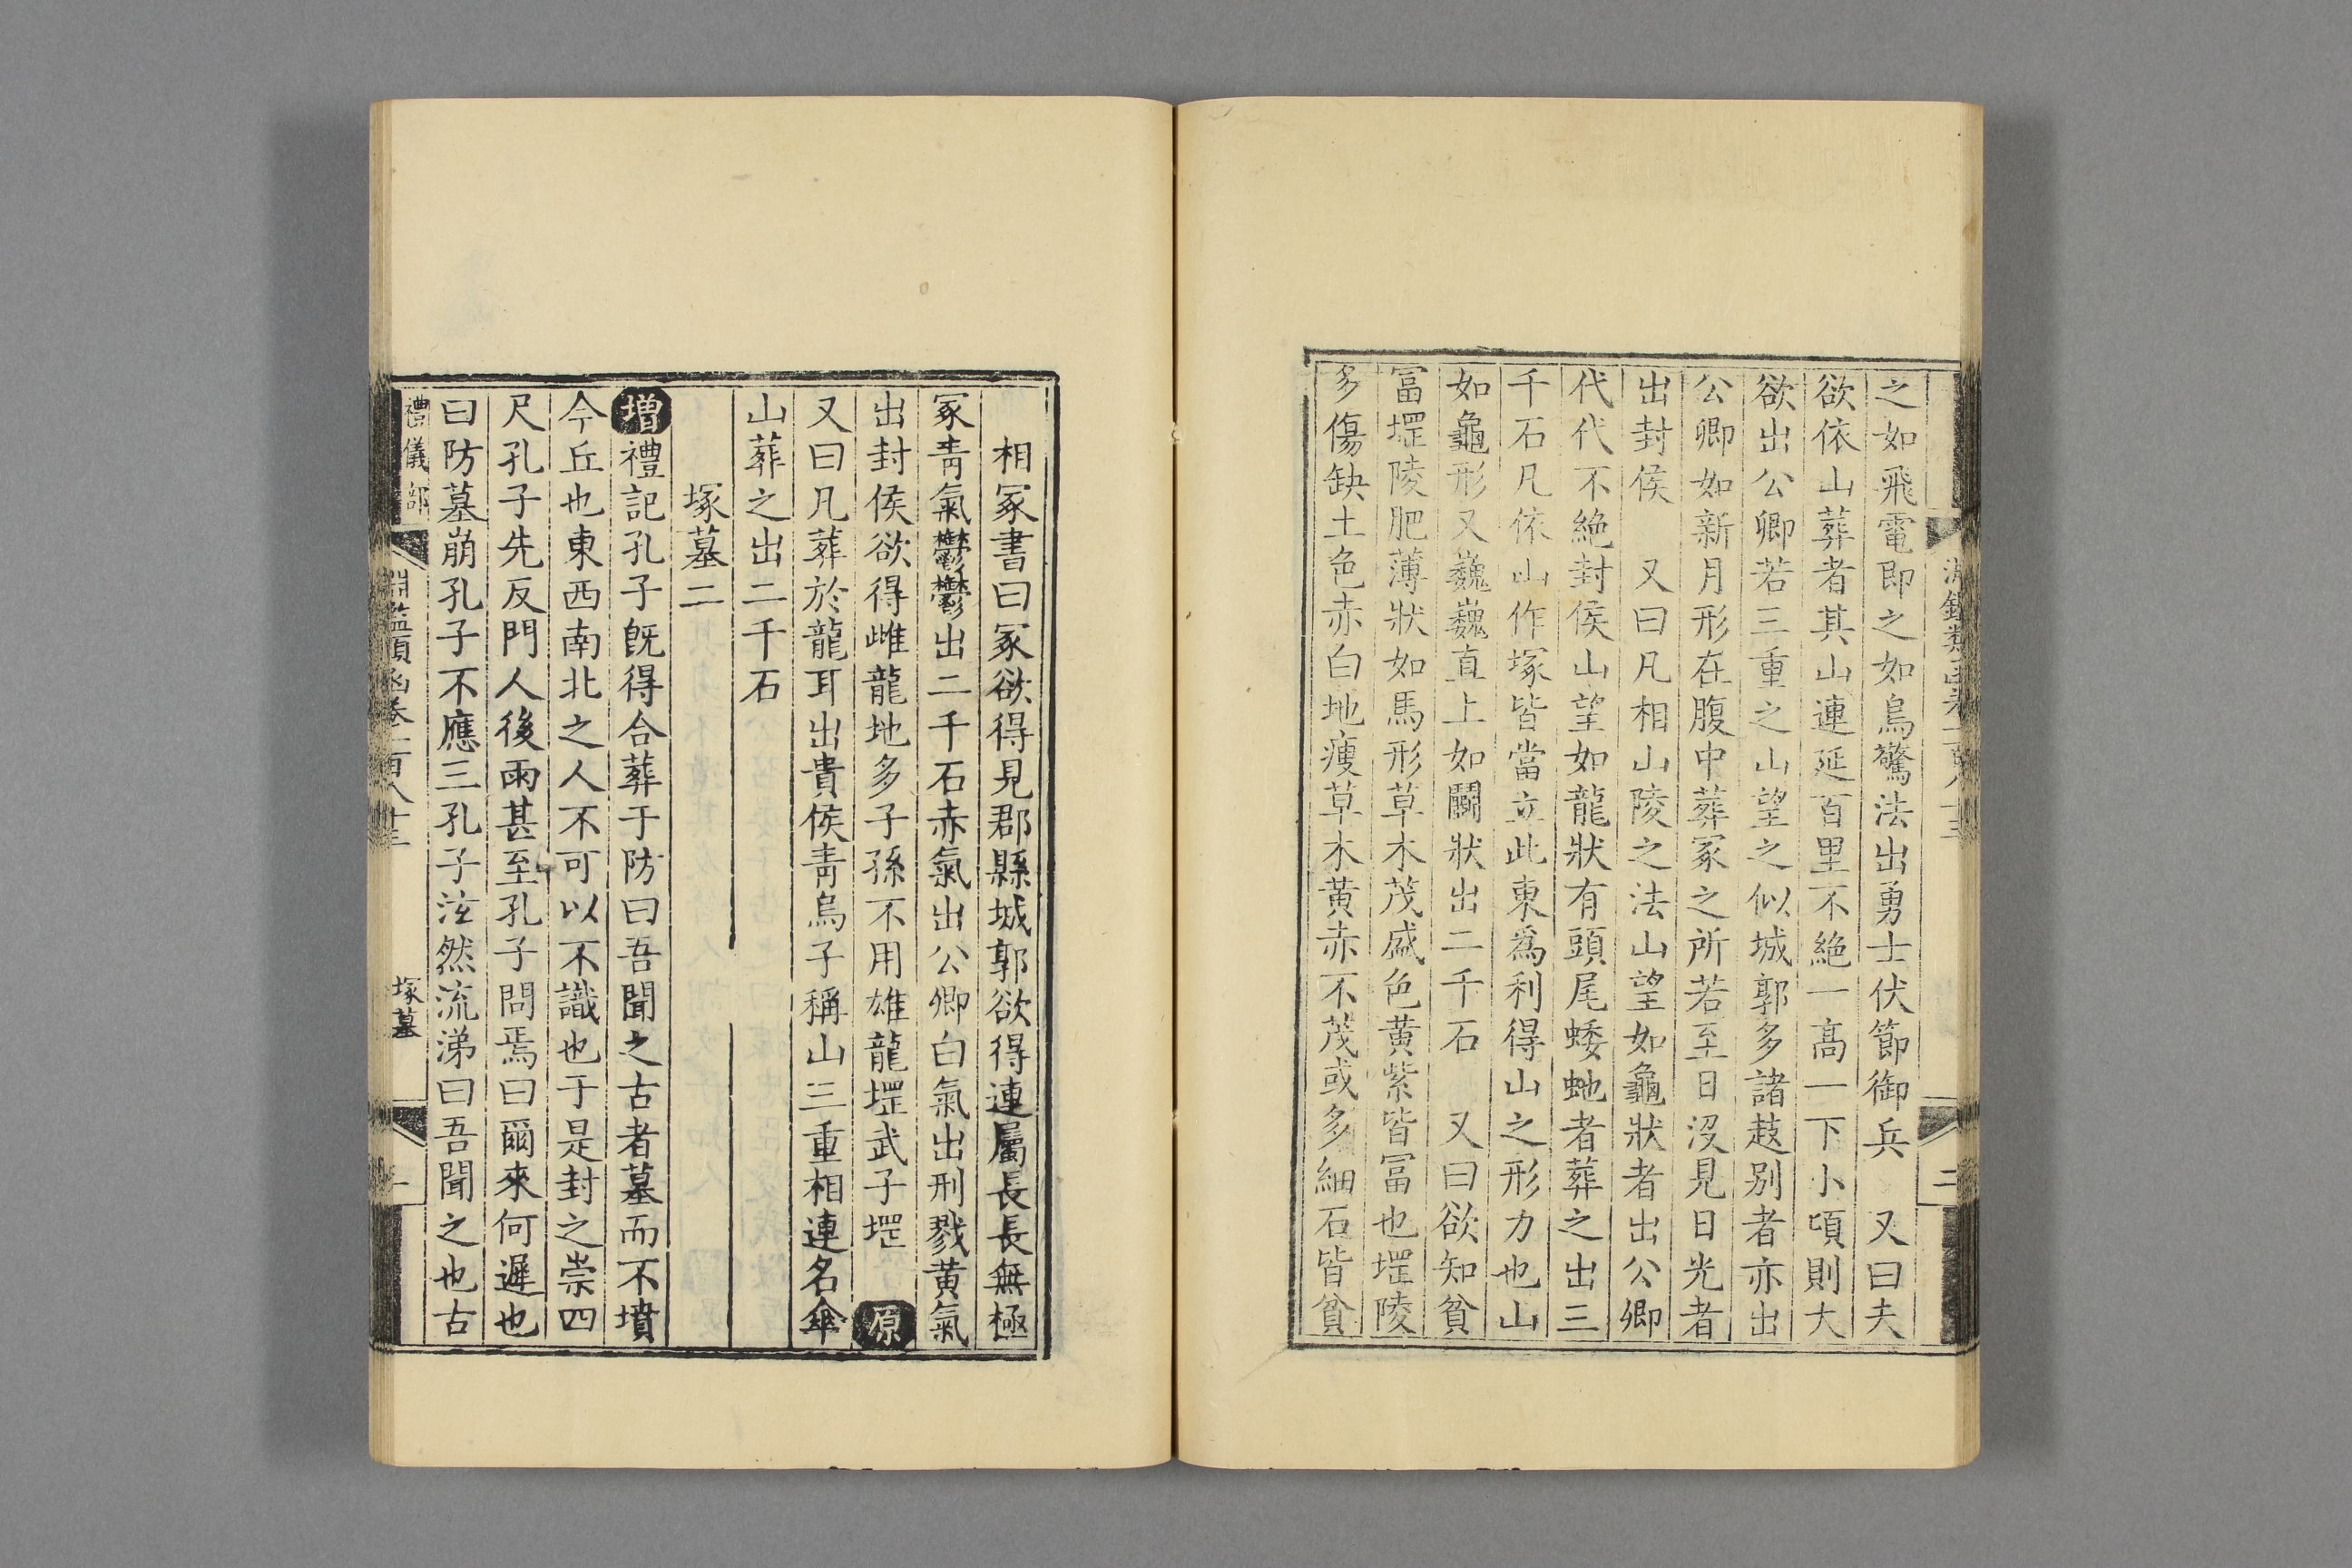 之如飛電即之如鳥驚法出勇士伏節御兵　又曰夫
欲依山葬者其山連延百里不絶一高一下小頃則大
欲出公卿若三重之山望之似城郭多諸趌别者亦出
公卿如新月形在腹中葬冢之所若至日沒見日光者
出封侯　又曰凡相山陵之法山望如龜狀者出公卿
代代不絶封侯山望如龍狀有頭尾蜲虵者葬之出三
千石凡依山作塚皆當立此東爲利得山之形力也山
如龜形又巍巍直上如鬭狀出二千石　又曰欲知貧
冨堽陵肥薄狀如馬形草木茂盛色黄紫皆冨也堽陵
多傷缺土色赤白地瘦草木黃赤不茂或多細石皆貧
相冢書曰冢欲得見郡縣城郭欲得連屬長長無極
冢靑氣鬱鬱出二千石赤氣出公卿白氣出刑戮黃氣
出封侯欲得雌龍地多子孫不用雄龍堽武子堽　原
又曰凡葬於龍耳出貴侯靑烏子稱山三重相連名傘
山葬之出二千石
塚墓二
增禮記孔子旣得合葬于防曰吾聞之古者墓而不墳
今丘也東西南北之人不可以不識也于是封之崇四
尺孔子先反門人後雨甚至孔子問焉曰爾來何遲也
曰防墓崩孔子不應三孔子泫然流涕曰吾聞之也古
禮儀部
淵鑑類函卷一百八十三
塚墓